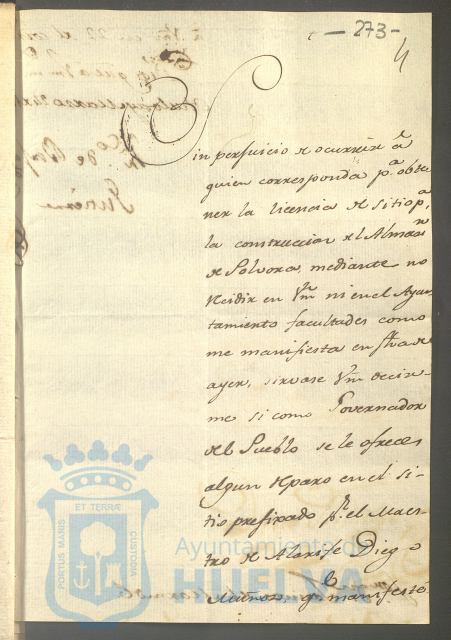 - 273 -
4
Sin perjuicio de ocurrir a
quien corresponda pa obte
ner la licencia de sitio pa
la construccion del Almacn
de Polvora, mediante no
recidir en Vm ni en el Ayun
tamiento facultades como
me manifiesta en fha de
ayer, sirvase Vm decir-
me si como Governador
del Pueblo se le ofrece
algun reparo en el si-
tio prefixado pr el Maes
tro de Alarife Diego
qe manifestó
Ayuntamiento de
HUELVA
PORTUS MARIS ET TERRÆ CUSTODIA